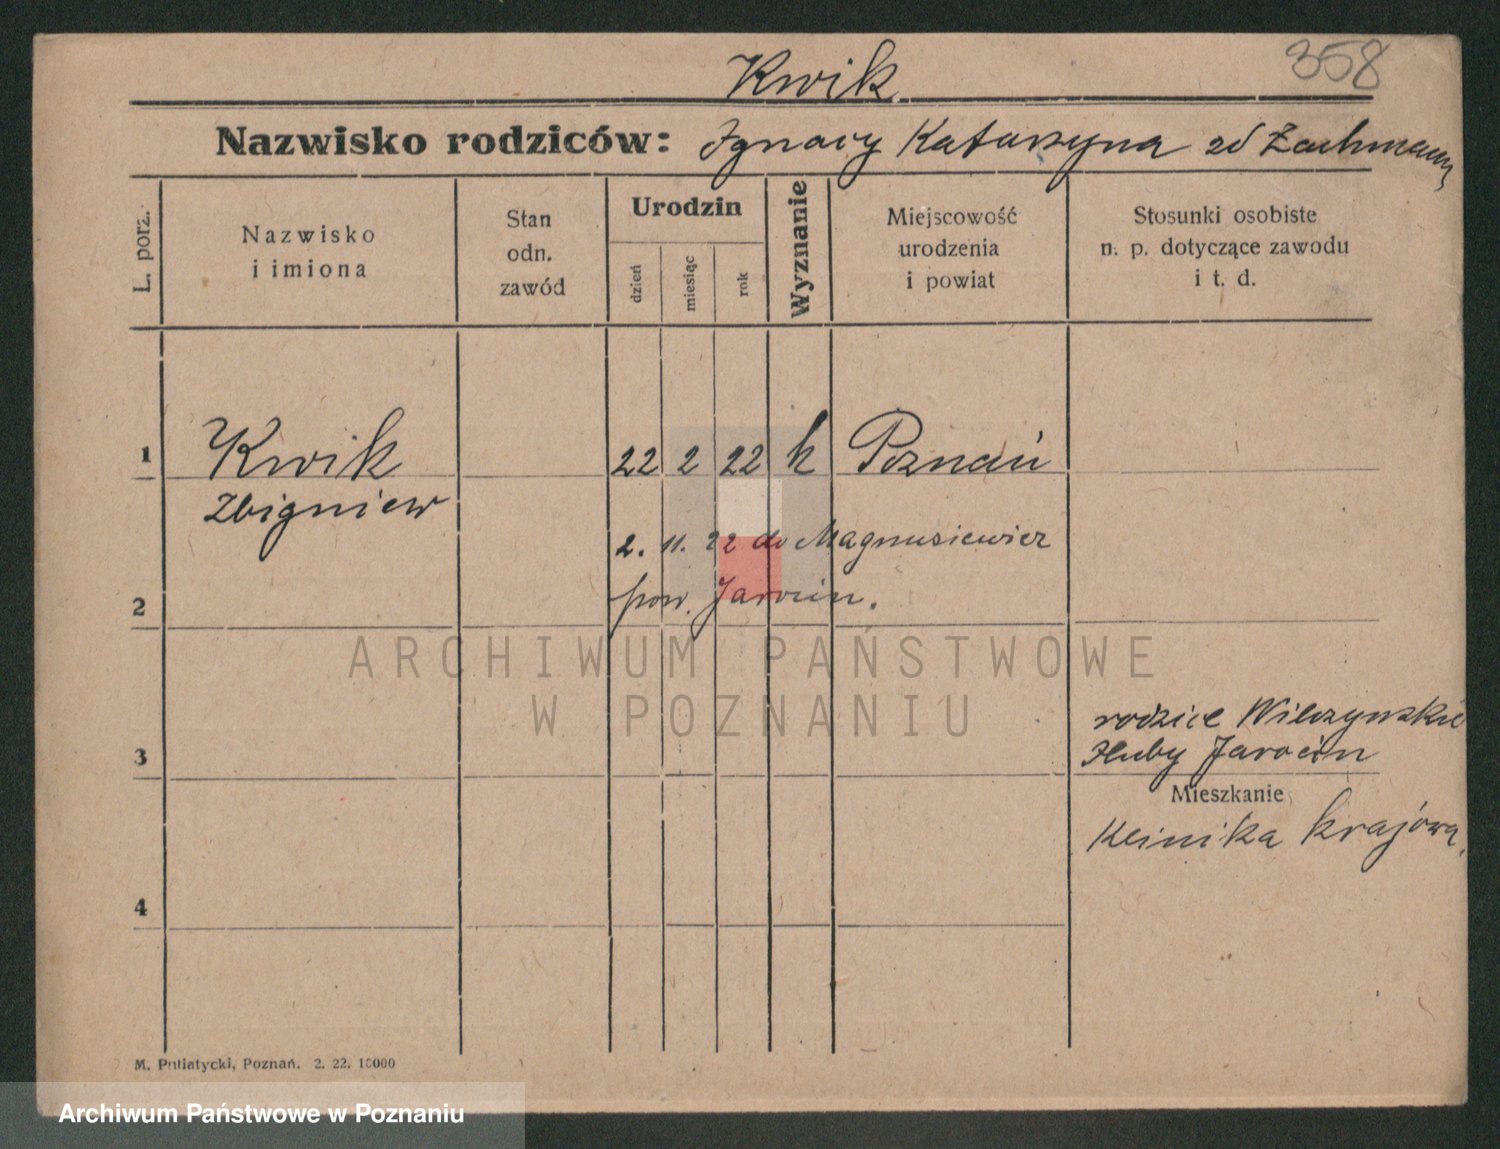 Kwik
358
Nazwisko rodziców: Ignacy Katarzyna zd Zachmann
L. porz.
Nazwisko
i imiona
Stan
odn.
zawód
Urodzin
dzień
miesiąc
rok
Wyznanie
Miejscowość
urodzenia
i powiat
Stosunki osobiste
n. p. dotyczące zawodu
i t. d.
1 Kwik 22 2 22 k Poznań
Zbigniew
2. 11. 22 do Magnusiewicz
2 pow. Jarocin.
ARCHIWUM PAŃSTWOWE
W POZNANIU
rodzice Wilczyńskie
3 Huby Jarocin
Mieszkanie
Klinika krajowa
4
M. Putiatycki, Poznań. 2. 22. 10000
Archiwum Państwowe w Poznaniu